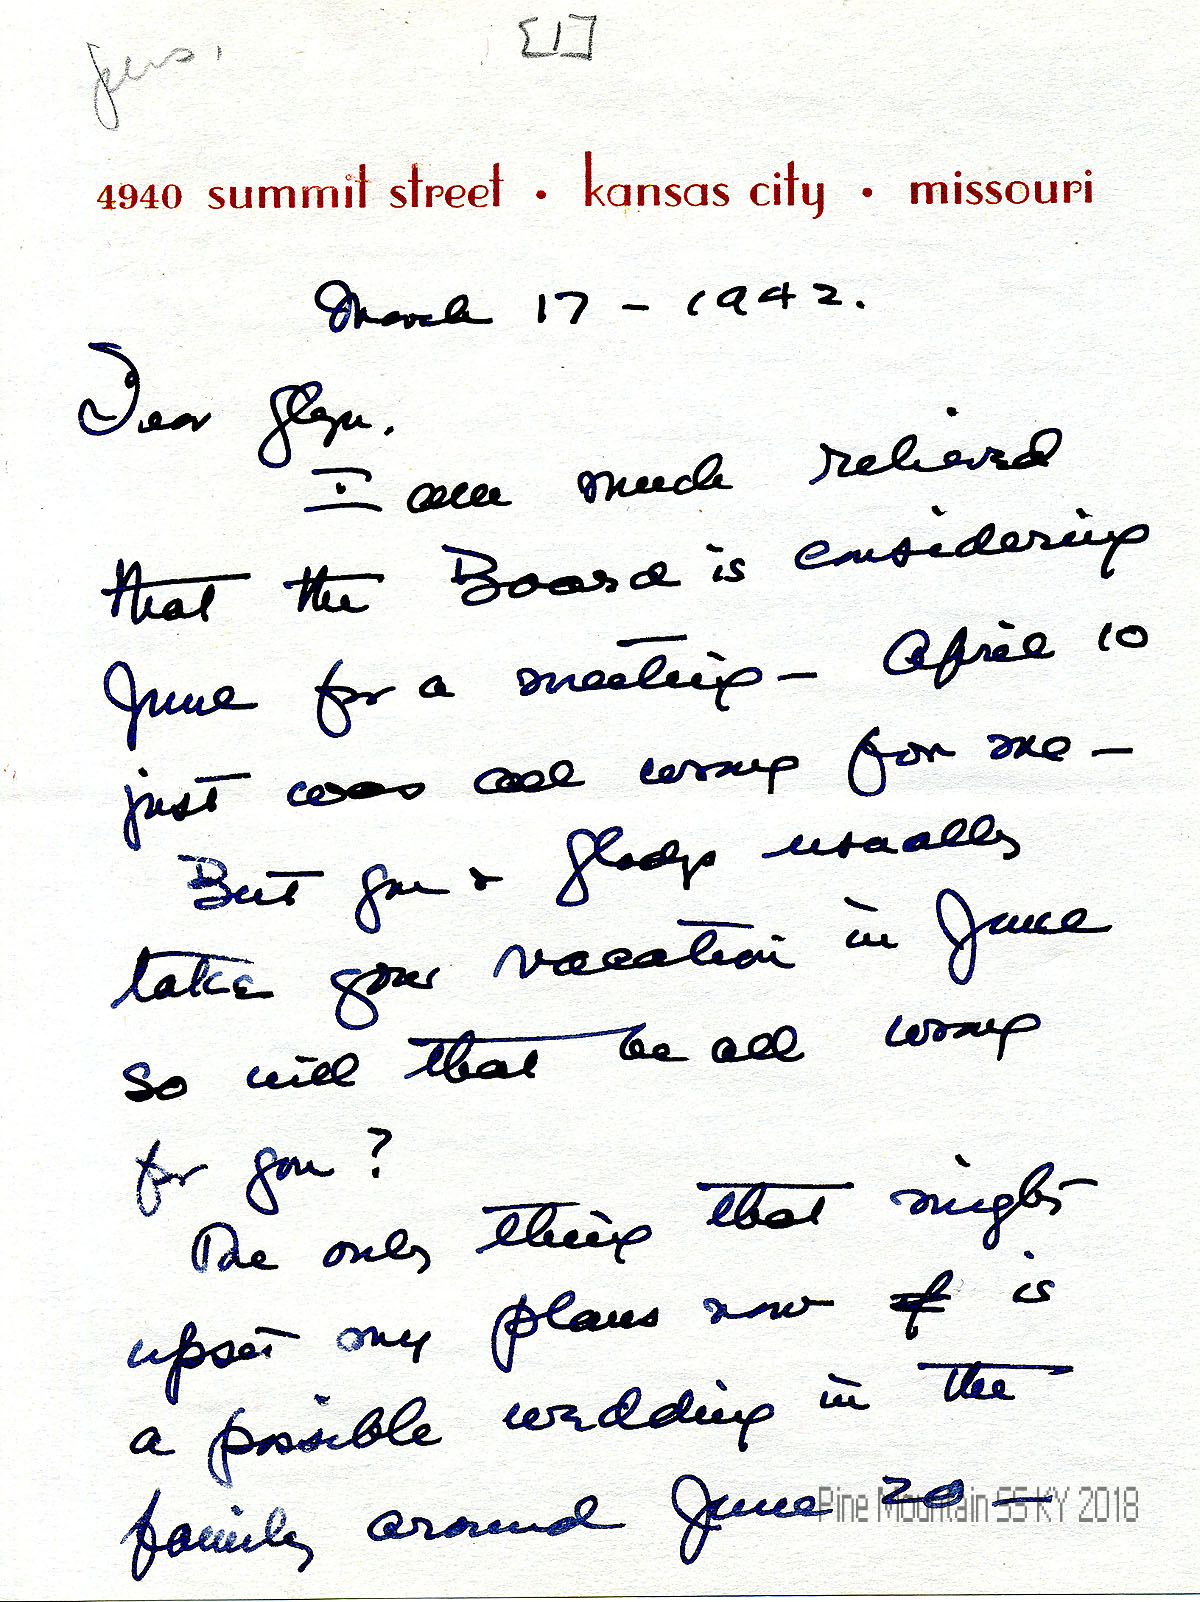 [1]
pers.
4940 summit street • kansas city • missouri
March 17 - 1942.
Dear Glyn.
I am much relieved
that the Board is considering
June for a meeting - April 10
just was all wrong for me -
But you & Gladys usually
take your vacation in June
so will that be all wrong
for you?
The only thing that might
upset my plans now is
a possible wedding in the
family around June 20 -
Pine Mountain SS KY 2018